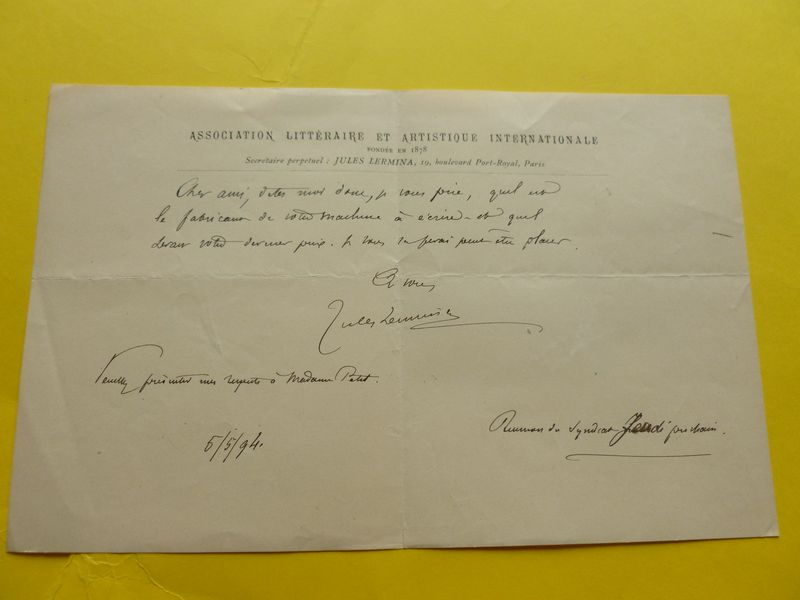 ASSOCIATION LITTÉRAIRE ET ARTISTIQUE INTERNATIONALE
FONDÉE EN 1878
Secretaire perpetuel : JULES LERMINA, 10, boulevard Port-Royal, Paris
Cher ami, dites moi donc, je vous prie, quel est
le fabricant de votre machine à écrire et quel
serait votre dernier prix. Je vous la ferai peut être placer.
A vous
Jules Lermina
Veuillez présenter mes respects à Madame Petit.
5/5/94.
Reunion du Syndicat Jeudi prochain.